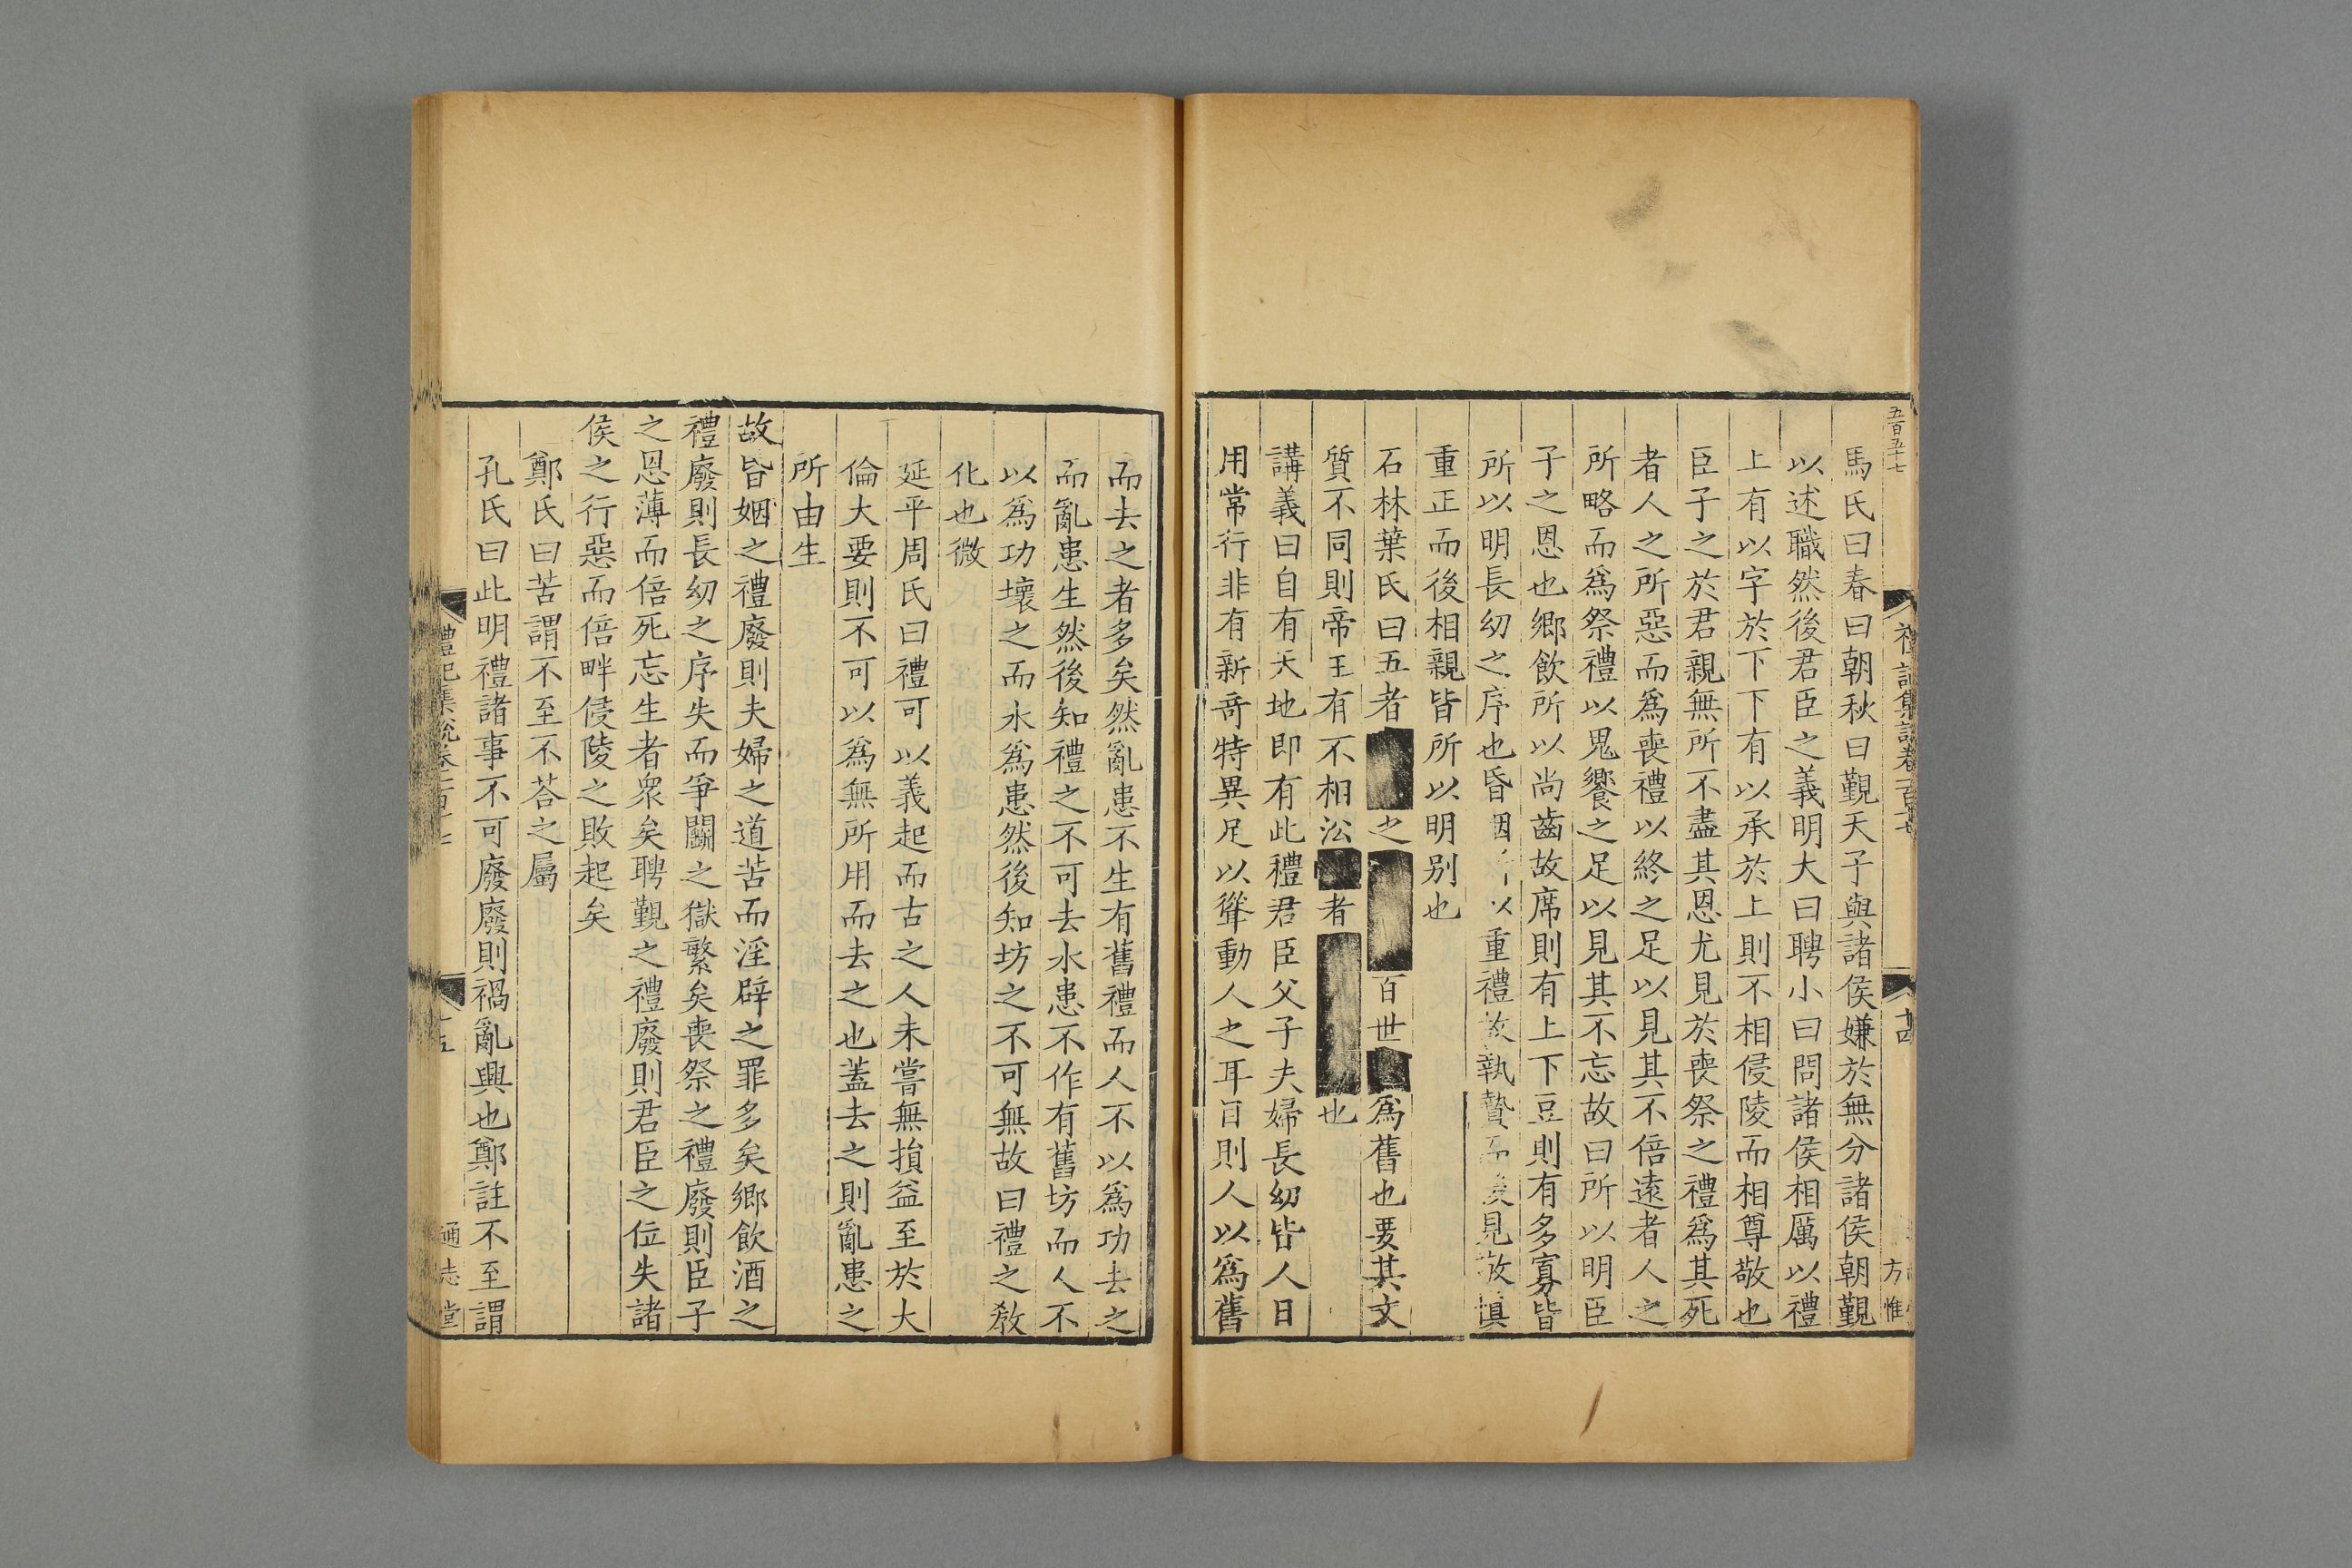 五百五十七
馬氏曰春曰朝秋曰覲天子與諸侯嫌於無分諸侯朝覲
以述職然後君臣之義明大曰聘小曰問諸侯相厲以禮
上有以字於下下有以承於上則不相侵陵而相尊敬也
臣子之於君親無所不盡其恩尤見於喪祭之禮爲其死
者人之所惡而爲喪禮以終之足以見其不倍遠者人之
所略而爲祭禮以鬼饗之足以見其不忘故曰所以明臣
子之恩也鄉飲所以尚齒故席則有上下豆則有多寡皆
所以明長幼之序也昏姻以重禮故執贄而後見敬慎
重正而後相親皆所以明别也
石林葉氏曰五者之百世爲舊也要其文
質不同則帝王有不相㳂者也
講義曰自有天地即有此禮君臣父子夫婦長幼皆人日
用常行非有新奇特異足以聳動人之耳目則人以爲舊
方惟
而去之者多矣然亂患不生有舊禮而人不以爲功去之
而亂患生然後知禮之不可去水患不作有舊坊而人不
以爲功壞之而水爲患然後知坊之不可無故曰禮之敎
化也微
延平周氏曰禮可以義起而古之人未嘗無損益至於大
倫大要則不可以爲無所用而去之也蓋去之則亂患之
所由生
故昏姻之禮廢則夫婦之道苦而淫辟之罪多矣鄉飲酒之
禮廢則長幼之序失而爭鬭之獄繁矣喪祭之禮廢則臣子
之恩薄而倍死忘生者衆矣聘覲之禮廢則君臣之位失諸
侯之行惡而倍畔侵陵之敗起矣
鄭氏曰苦謂不至不荅之屬
孔氏曰此明禮諸事不可廢廢則禍亂興也鄭註不至謂
通志堂